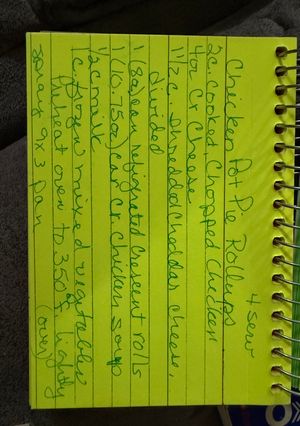 4 serv
Chicken Pot Pie Rollups
2c cooked, chopped chicken
4oz Cr Cheese
1 1/2 c. shredded cheddar cheese,
divided
1 (8oz) can refrigerated crescent rolls
1 (10.75oz) can cr. chicken soup
1/2 c milk
1 c. frozen mixed vegetables
Preheat oven to 350°, lightly
spray 9x3 pan
(over)